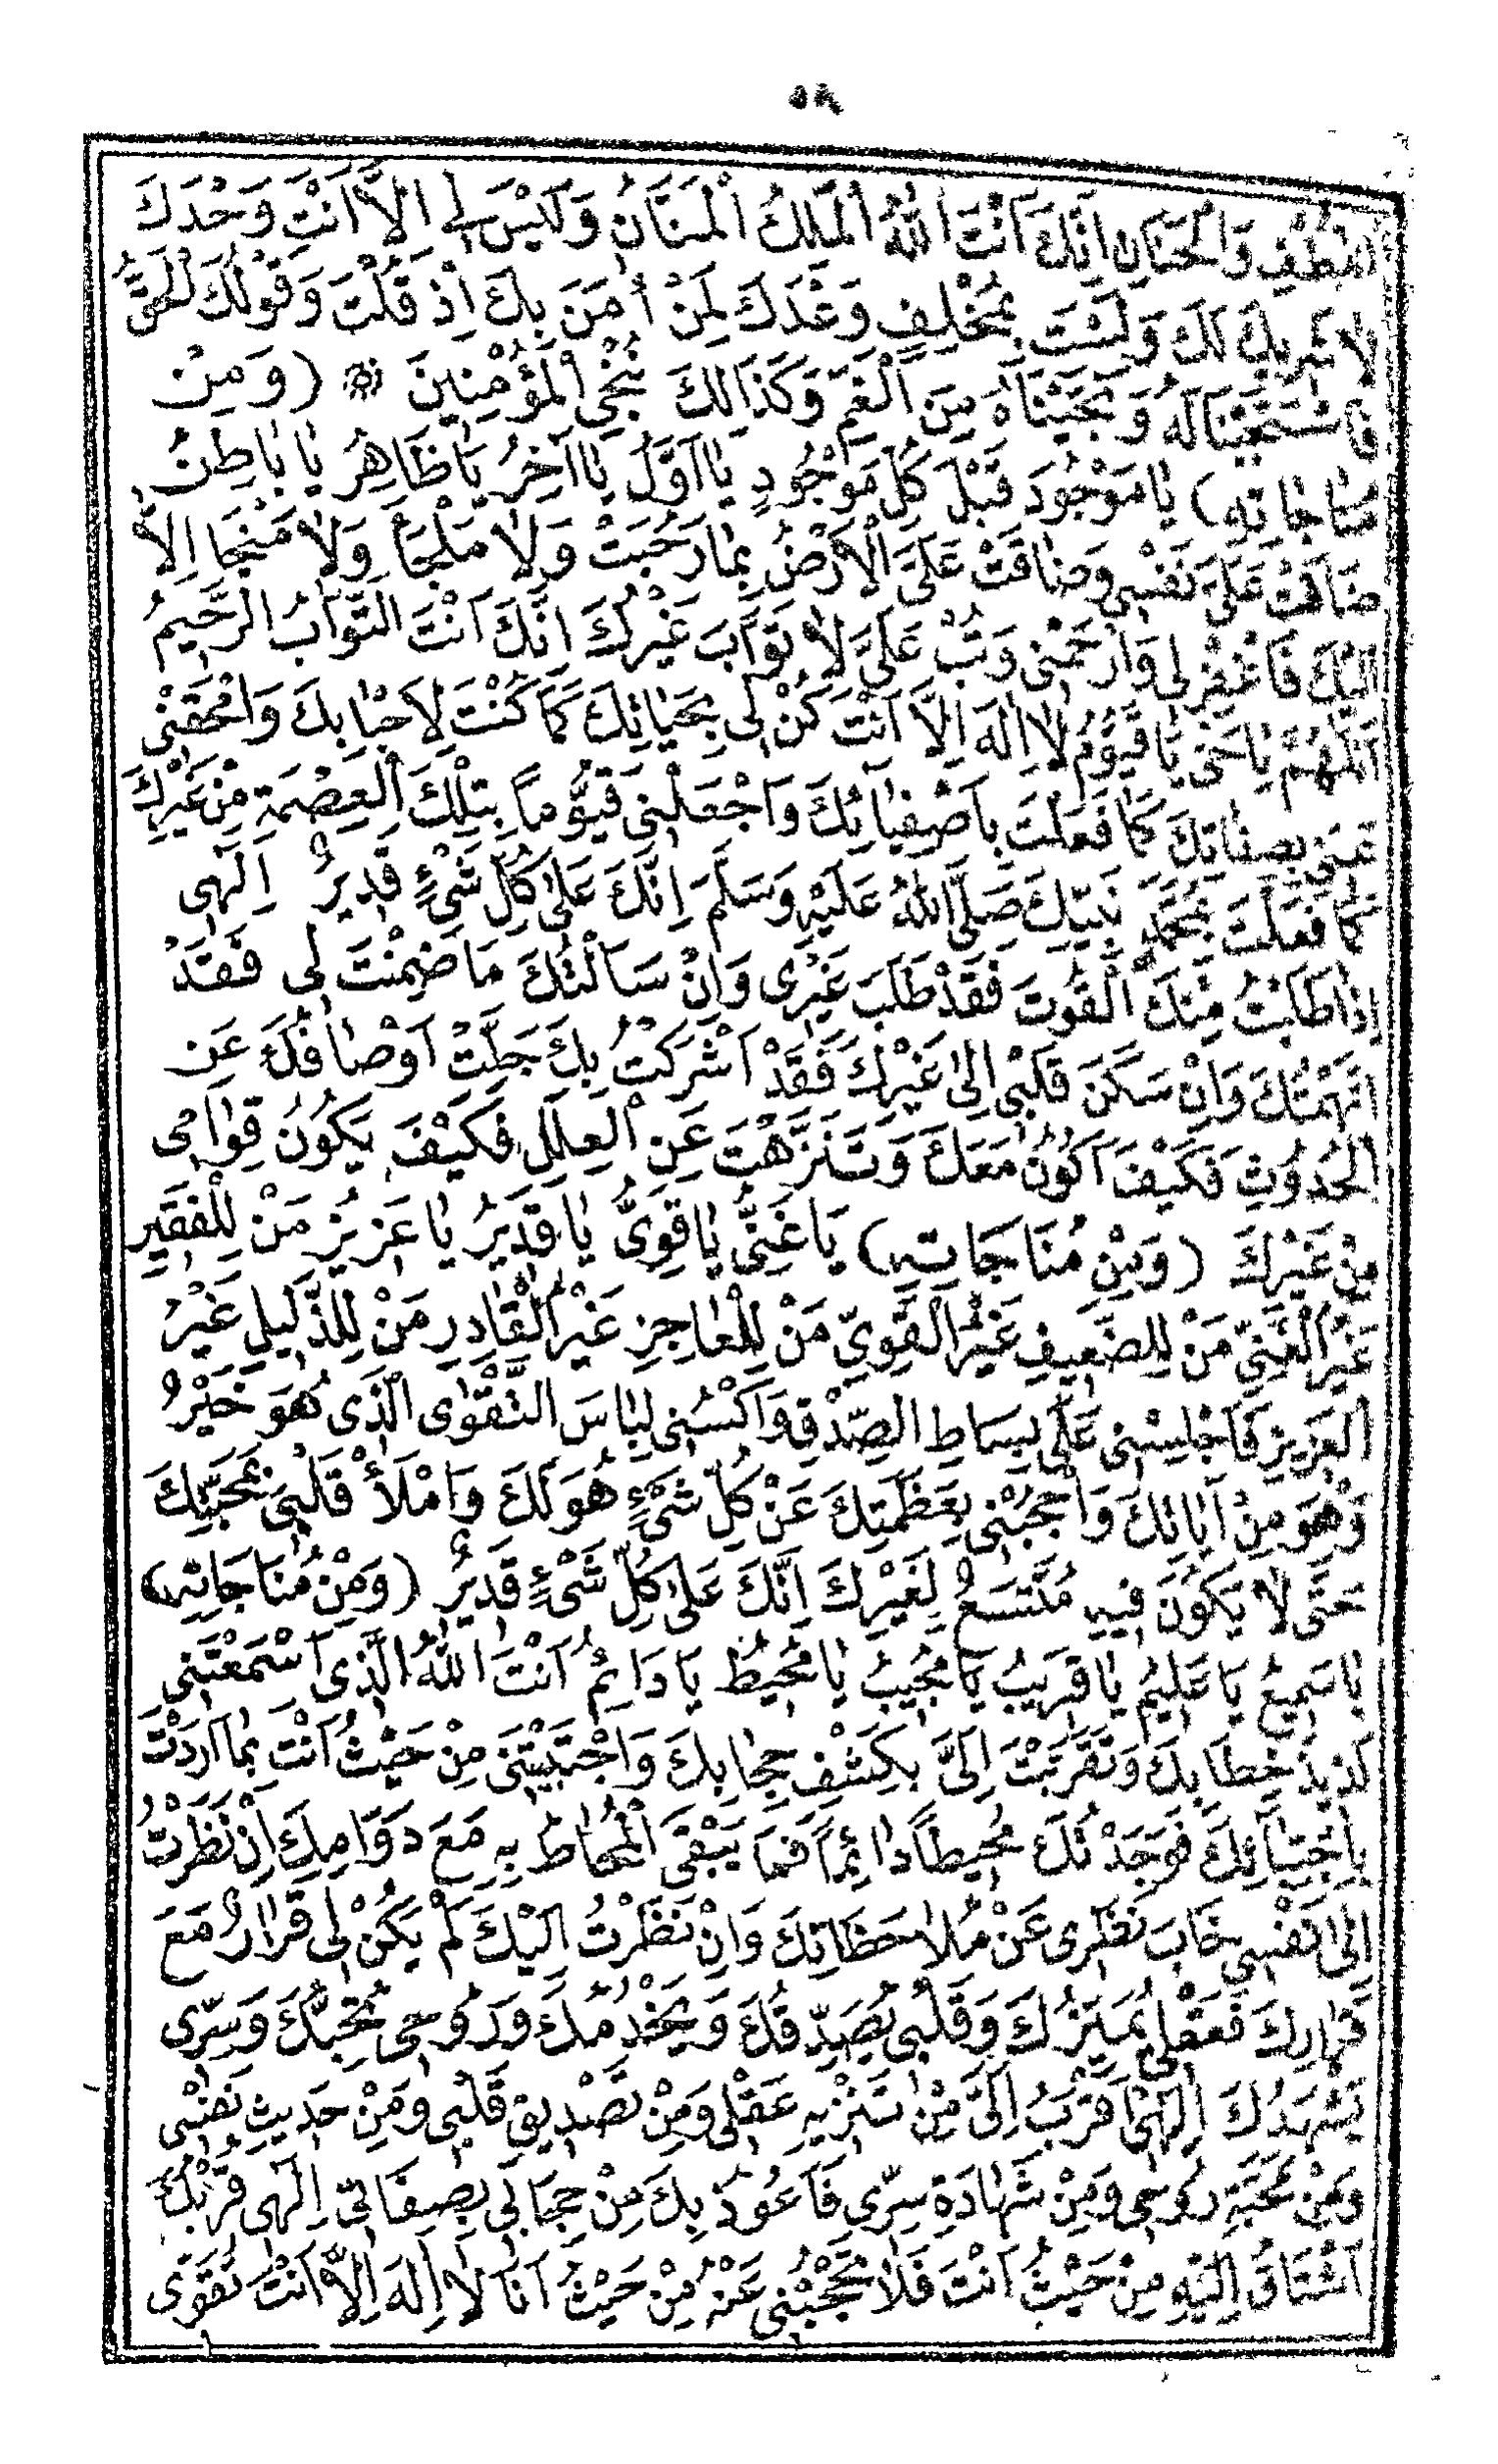 ٥٨
اللُّطْفِ وَالْحَنَانِ اِنَّكَ اَنْتَ اللهُ الْمَلِكُ الْمَنَّانُ وَلَيْسَ لِى اِلَّا اَنْتَ وَحْدَكَ
لَا شَرِيكَ لَكَ وَلَسْتَ بِمُخْلِفٍ وَعْدَكَ لِمَنْ اٰمَنَ بِكَ اِذْ قُلْتَ وَقَوْلُكَ الْحَقُّ
فَاسْتَجَبْنَا لَهُ وَنَجَّيْنَاهُ مِنَ الْغَمِّ وَكَذَالِكَ نُنْجِى الْمُؤْمِنِينَ ۞ (وَمِنْ
مُنَاجَاتِهِ) يَا مَوْجُودَ قَبْلَ كُلِّ مَوْجُودٍ يَا اَوَّلُ يَا اٰخِرُ يَا ظَاهِرُ يَا بَاطِنُ
ضَاقَتْ عَلَىَّ نَفْسِى وَضَاقَتْ عَلَىَّ الْاَرْضُ بِمَا رَحُبَتْ وَلَا مَلْجَأَ وَلَا مَنْجَا اِلَّا
اِلَيْكَ فَاغْفِرْلِى وَارْحَمْنِى وَتُبْ عَلَىَّ لَا تَوَّابَ غَيْرُكَ اِنَّكَ اَنْتَ التَّوَّابُ الرَّحِيمُ
اَللّٰهُمَّ يَا حَىُّ يَا قَيُّومُ لَا اِلٰهَ اِلَّا اَنْتَ كُنْ لِى بِحَيَاتِكَ كَمَا كُنْتَ لِاَحْبَابِكَ وَامْحَقْنِى
عَنِّى بِصِفَاتِكَ كَمَا فَعَلْتَ بِاَصْفِيَائِكَ وَاجْعَلْنِى قَيُّومًا بِتِلْكَ الْعِصْمَةِ مِنْ غَيْرِكَ
كَمَا فَعَلْتَ بِمُحَمَّدٍ نَبِيِّكَ صَلَّى اللهُ عَلَيْهِ وَسَلَّمَ اِنَّكَ عَلَى كُلِّ شَىْءٍ قَدِيرٌ اِلٰهِى
اِذَا طَلَبْتُ مِنْكَ الْقُوتَ فَقَدْ طَلَبَ غَيْرِى وَاِنْ سَاَلْتُكَ مَا ضَمِنْتَ لِى فَقَدْ
اتَّهَمْتُكَ وَاِنْ سَكَنَ قَلْبِى اِلَى غَيْرِكَ فَقَدْ اَشْرَكْتُ بِكَ جَلَّتْ اَوْصَافُكَ عَنِ
الْحُدُوثِ فَكَيْفَ اَكُونُ مَعَكَ وَتَنَزَّهْتَ عَنِ الْعِلَلِ فَكَيْفَ يَكُونُ قِوَامِى
مِنْ غَيْرِكَ (وَمِنْ مُنَاجَاتِهِ) يَا غَنِىُّ يَا قَوِىُّ يَا قَدِيرُ يَا عَزِيزُ مَنْ لِلْفَقِيرِ
غَيْرُ الْغَنِىِّ مَنْ لِلضَّعِيفِ غَيْرُ الْقَوِىِّ مَنْ لِلْعَاجِزِ غَيْرُ الْقَادِرِ مَنْ لِلذَّلِيلِ غَيْرُ
الْعَزِيزِ فَاَجْلِسْنِى عَلَى بِسَاطِ الصِّدْقِ وَاكْسُنِى لِبَاسَ التَّقْوَى الَّذِى هُوَ خَيْرٌ
وَهُوَ مِنْ اٰيَاتِكَ وَاحْجُبْنِى بِعَظَمَتِكَ عَنْ كُلِّ شَىْءٍ هُوَ لَكَ وَامْلَأْ قَلْبِى بِمَحَبَّتِكَ
حَتَّى لَا يَكُونَ فِيهِ مُتَّسَعٌ لِغَيْرِكَ اِنَّكَ عَلَى كُلِّ شَىْءٍ قَدِيرٌ (وَمِنْ مُنَاجَاتِهِ)
يَا سَمِيعُ يَا عَلِيمُ يَا قَرِيبُ يَا مُجِيبُ يَا مُحِيطُ يَا دَائِمُ اَنْتَ اللهُ الَّذِى اَسْمَعْتَنِى
لَذِيذَ خِطَابِكَ وَتَقَرَّبْتَ اِلَىَّ بِكَشْفِ حِجَابِكَ وَاجْتَبَيْتَنِى مِنْ حَيْثُ اَنْتَ بِمَا اَرَدْتَ
بِاجْتِبَائِكَ فَوَجَدْتُكَ مُحِيطًا دَائِمًا فَمَا يَبْقَى الْمُحَاطُ بِهِ مَعَ دَوَامِكَ اِنْ نَظَرْتُ
اِلَى نَفْسِى خَابَ نَظَرِى عَنْ مُلَاحَظَاتِكَ وَاِنْ نَظَرْتُ اِلَيْكَ لَمْ يَكُنْ لِى قَرَارٌ مَعَ
قَرَارِكَ فَعَقْلِى يُمَيِّزُكَ وَقَلْبِى يُصَدِّقُكَ وَيَخْدُمُكَ وَرُوحِى تُحِبُّكَ وَسِرِّى
يَشْهَدُكَ اِلٰهِى اَقْرَبُ اِلَىَّ مِنْ تَنْزِيهِ عَقْلِى وَمِنْ تَصْدِيقِ قَلْبِى وَمِنْ حَدِيثِ نَفْسِى
وَمِنْ مَحَبَّةِ رُوحِى وَمِنْ شَهَادَةِ سِرِّى فَاَعُوذُ بِكَ مِنْ حِجَابِى بِصِفَاتِى اِلٰهِى قُرْبُكَ
اَشْتَاقُ اِلَيْهِ مِنْ حَيْثُ اَنْتَ فَلَا تَحْجُبْنِى عَنْهُ مِنْ حَيْثُ اَنَا لَا اِلٰهَ اِلَّا اَنْتَ تُقَوِّى